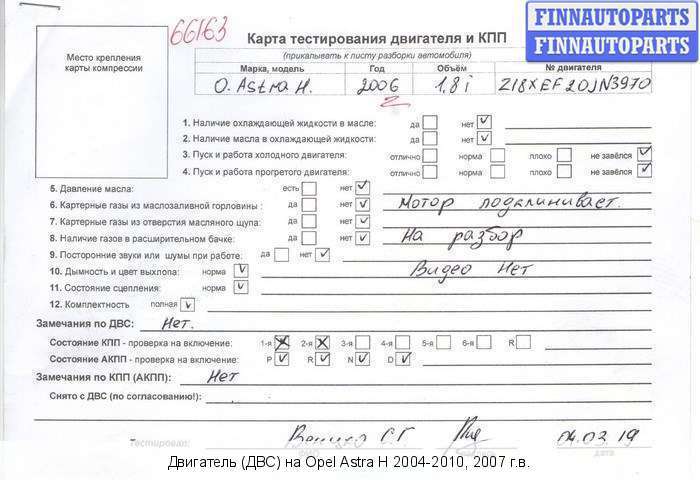 66163
FINNAUTOPARTS
FINNAUTOPARTS
Место крепления
карты компрессии
Карта тестирования двигателя и КПП
(прикалывать к листу разборки автомобиля)
Марка, модель Год Объём № двигателя
O. Astra H. 2006 1,8 i Z18XEF20JN3970
1. Наличие охлаждающей жидкости в масле: да нет
2. Наличие масла в охлаждающей жидкости: да нет
3. Пуск и работа холодного двигателя: отлично норма плохо не завёлся
4. Пуск и работа прогретого двигателя: отлично норма плохо не завёлся
5. Давление масла: есть нет
6. Картерные газы из маслозаливной горловины: да нет Мотор подклинивает.
7. Картерные газы из отверстия масляного щупа: да нет
8. Наличие газов в расширительном бачке: да нет На разбор
9. Посторонние звуки или шумы при работе: да нет
10. Дымность и цвет выхлопа: норма Видео нет
11. Состояние сцепления: норма
12. Комплектность полная
Замечания по ДВС: Нет.
Состояние КПП - проверка на включение: 1-я 2-я 3-я 4-я 5-я 6-я R
Состояние АКПП - проверка на включение: P R N D
Замечания по КПП (АКПП): Нет
Снято с ДВС (по согласованию!):
Тестировал: С.Г 04.03.19
ФИО дата
Двигатель (ДВС) на Opel Astra H 2004-2010, 2007 г.в.